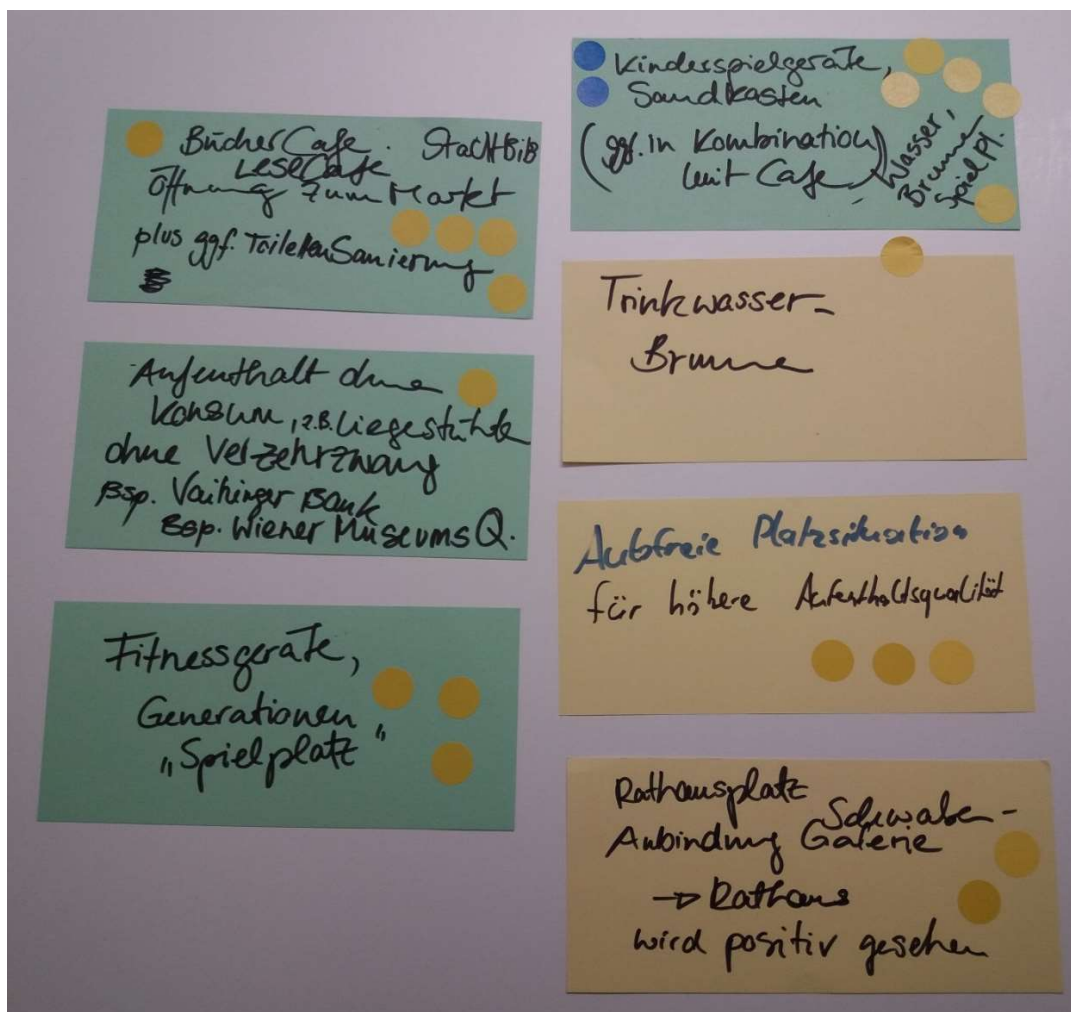 BücherCafe. StadtBiB
LeseCafe
Öffnung zum Markt
plus ggf. ToilettenSanierung
Aufenthalt ohne
Konsum, z.B. Liegestühle
ohne Verzehrzwang
Bsp. Vaihinger Bank
Bsp. Wiener MuseumsQ.
Fitnessgeräte,
Generationen
„Spielplatz"
Kinderspielgeräte,
Sandkasten
(ggf. in Kombination
mit Cafe)
Wasser,
Brunne
Spielpl.
Trinkwasser-
Brunne
Autofreie Platzsituation
für höhere Aufenthaltsqualität
Rathausplatz
Schwaben-
Anbindung Galerie
→ Rathaus
wird positiv gesehen